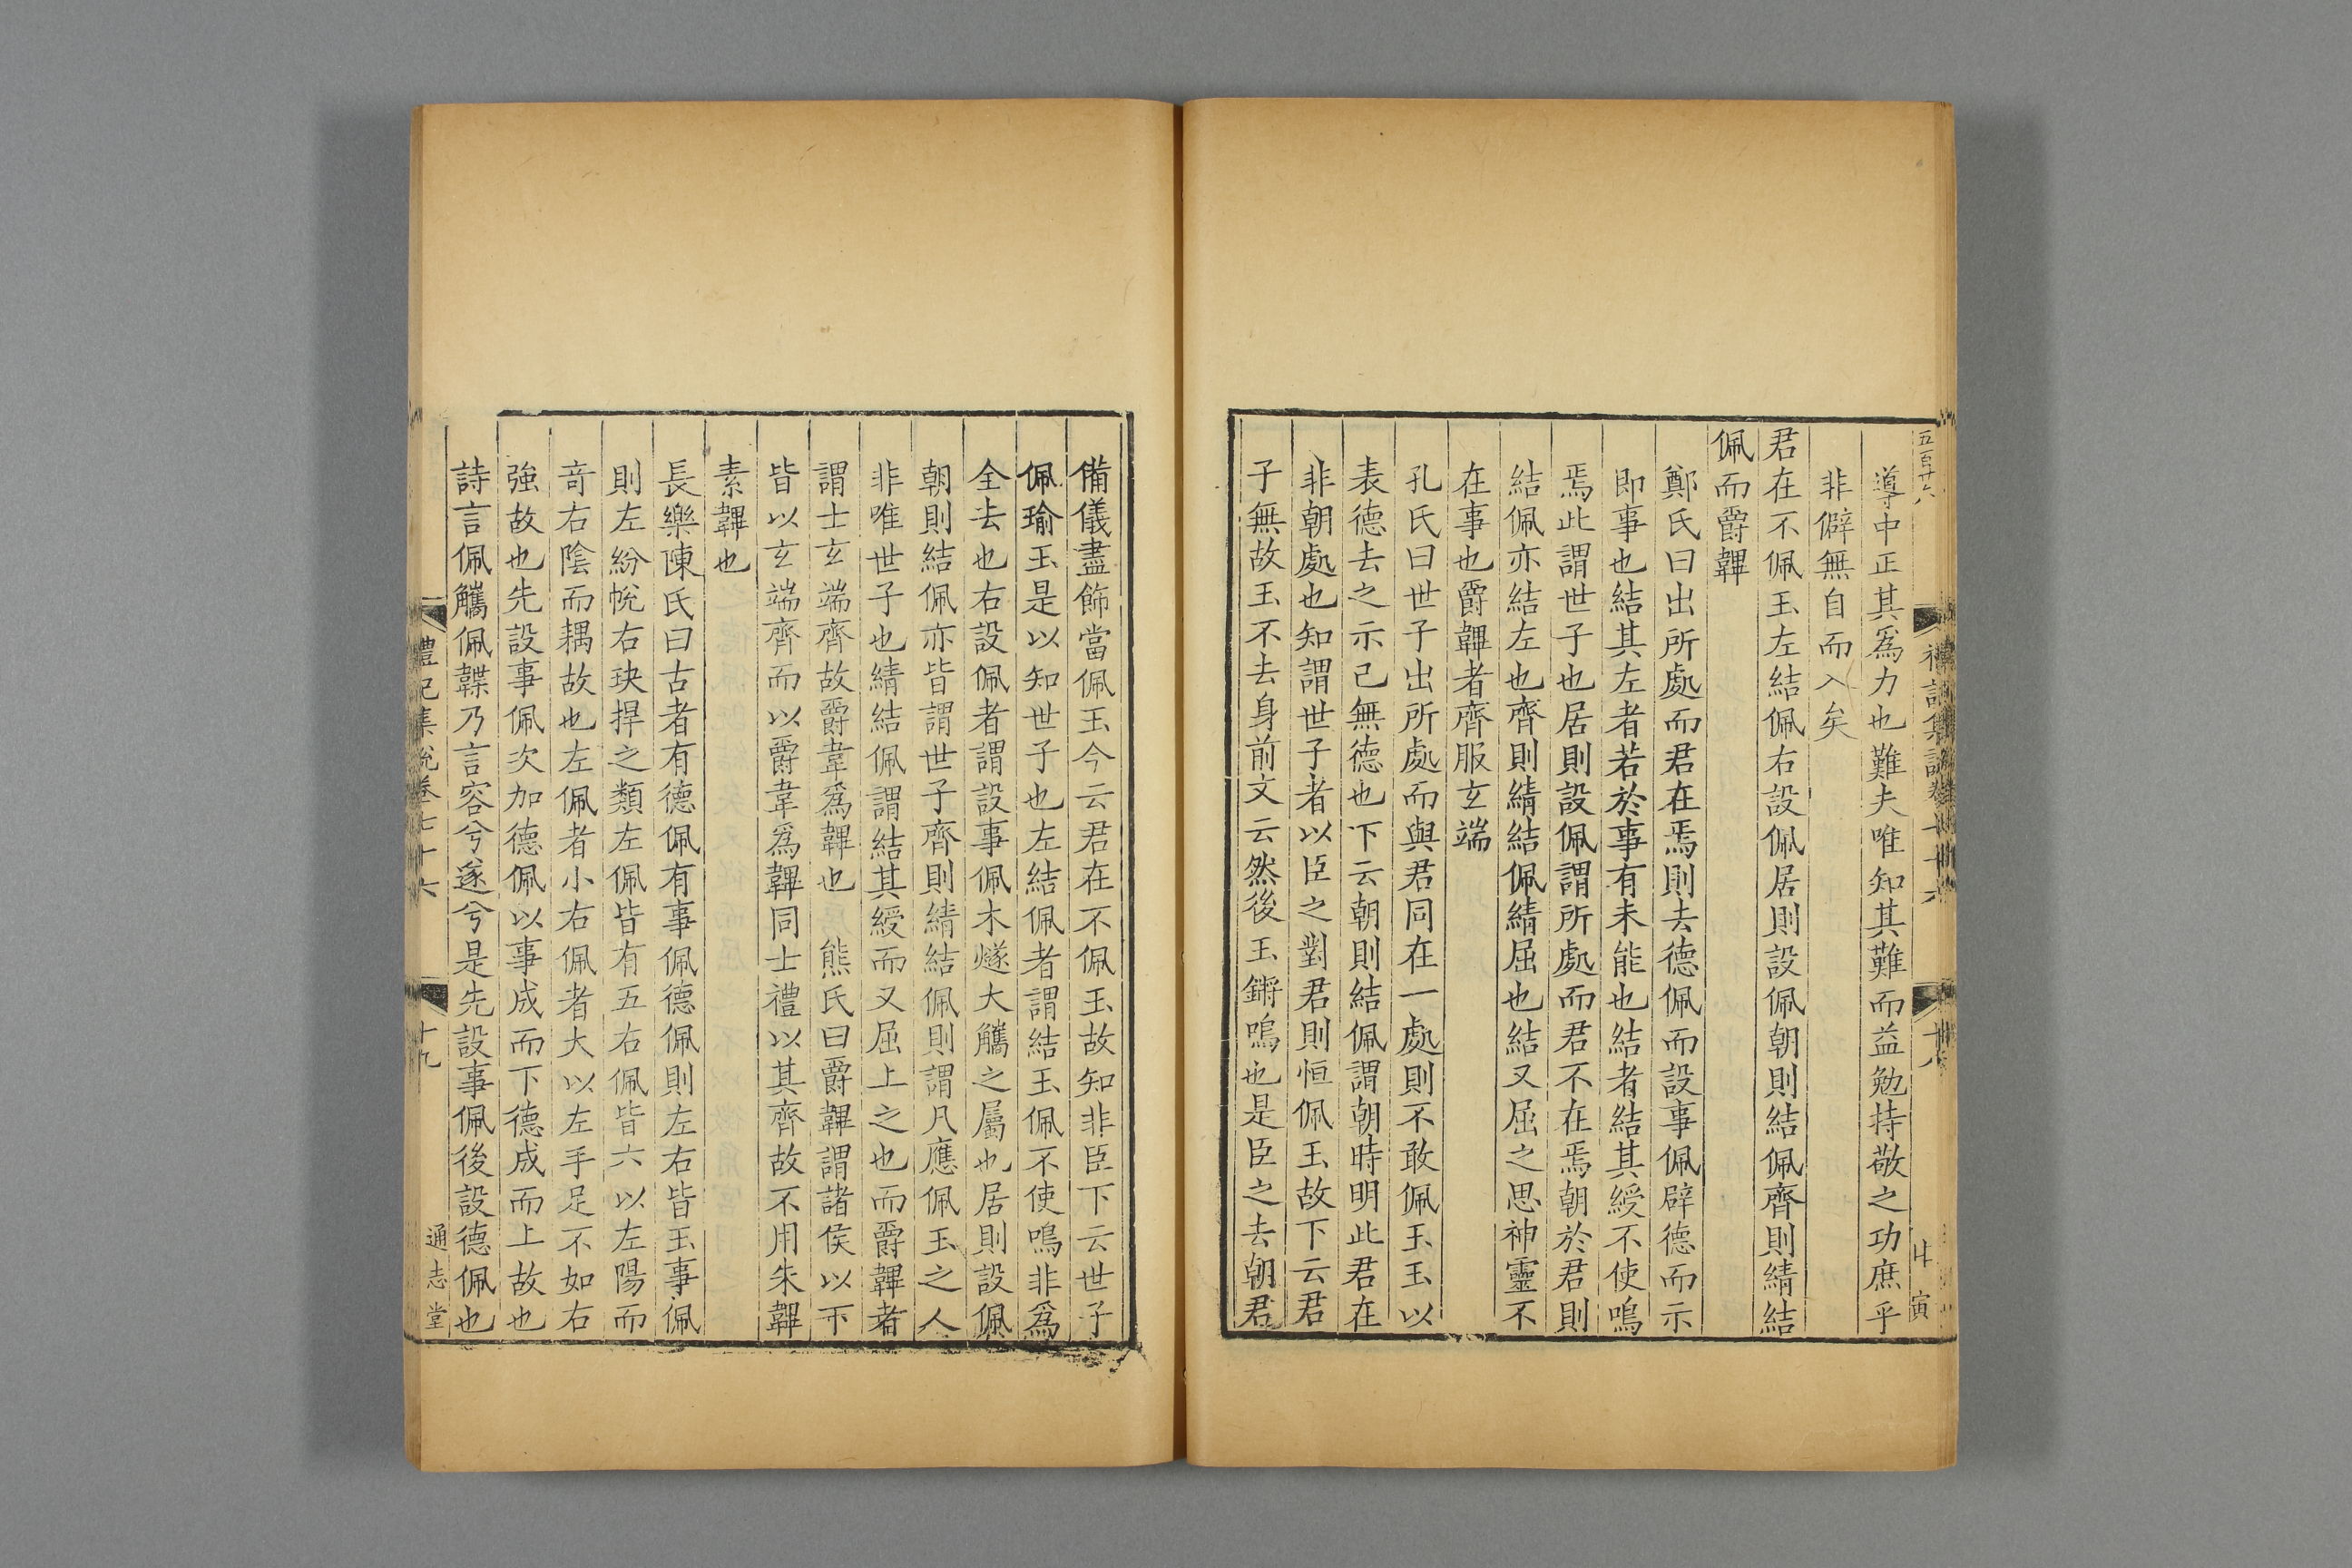 五百十六
導中正其爲力也難夫唯知其難而益勉持敬之功庶乎
非僻無自而入矣
君在不佩玉左結佩右設佩居則設佩朝則結佩齊則綪結
佩而爵韠
鄭氏曰出所處而君在焉則去德佩而設事佩辟德而示
即事也結其左者若於事有未能也結者結其綬不使鳴
焉此謂世子也居則設佩謂所處而君不在焉朝於君則
結佩亦結左也齊則綪結佩綪屈也結又屈之思神靈不
在事也爵韠者齊服玄端
孔氏曰世子出所處而與君同在一處則不敢佩玉玉以
表德去之示己無德也下云朝則結佩謂朝時明此君在
非朝處也知謂世子者以臣之對君則恒佩玉故下云君
子無故玉不去身前文云然後玉鏘鳴也是臣之去朝君
備儀盡飾當佩玉今云君在不佩玉故知非臣下云世子
佩瑜玉是以知世子也左結佩者謂結玉佩不使鳴非爲
全去也右設佩者謂設事佩木燧大觿之屬也居則設佩
朝則結佩亦皆謂世子齊則綪結佩則謂凡應佩玉之人
非唯世子也綪結佩謂結其綬而又屈上之也而爵韠者
謂士玄端齊故爵韋爲韠也 熊氏曰爵韠謂諸侯以下
皆以玄端齊而以爵韋爲韠同士禮以其齊故不用朱韠
素韠也
長樂陳氏曰古者有德佩有事佩德佩則左右皆玉事佩
則左紛帨右玦捍之類左佩皆有五右佩皆六以左陽而
竒右陰而耦故也左佩者小右佩者大以左手足不如右
強故也先設事佩次加德佩以事成而下德成而上故也
詩言佩觿佩韘乃言容兮遂兮是先設事佩後設德佩也
禮記集說卷七十六
十九
通志堂